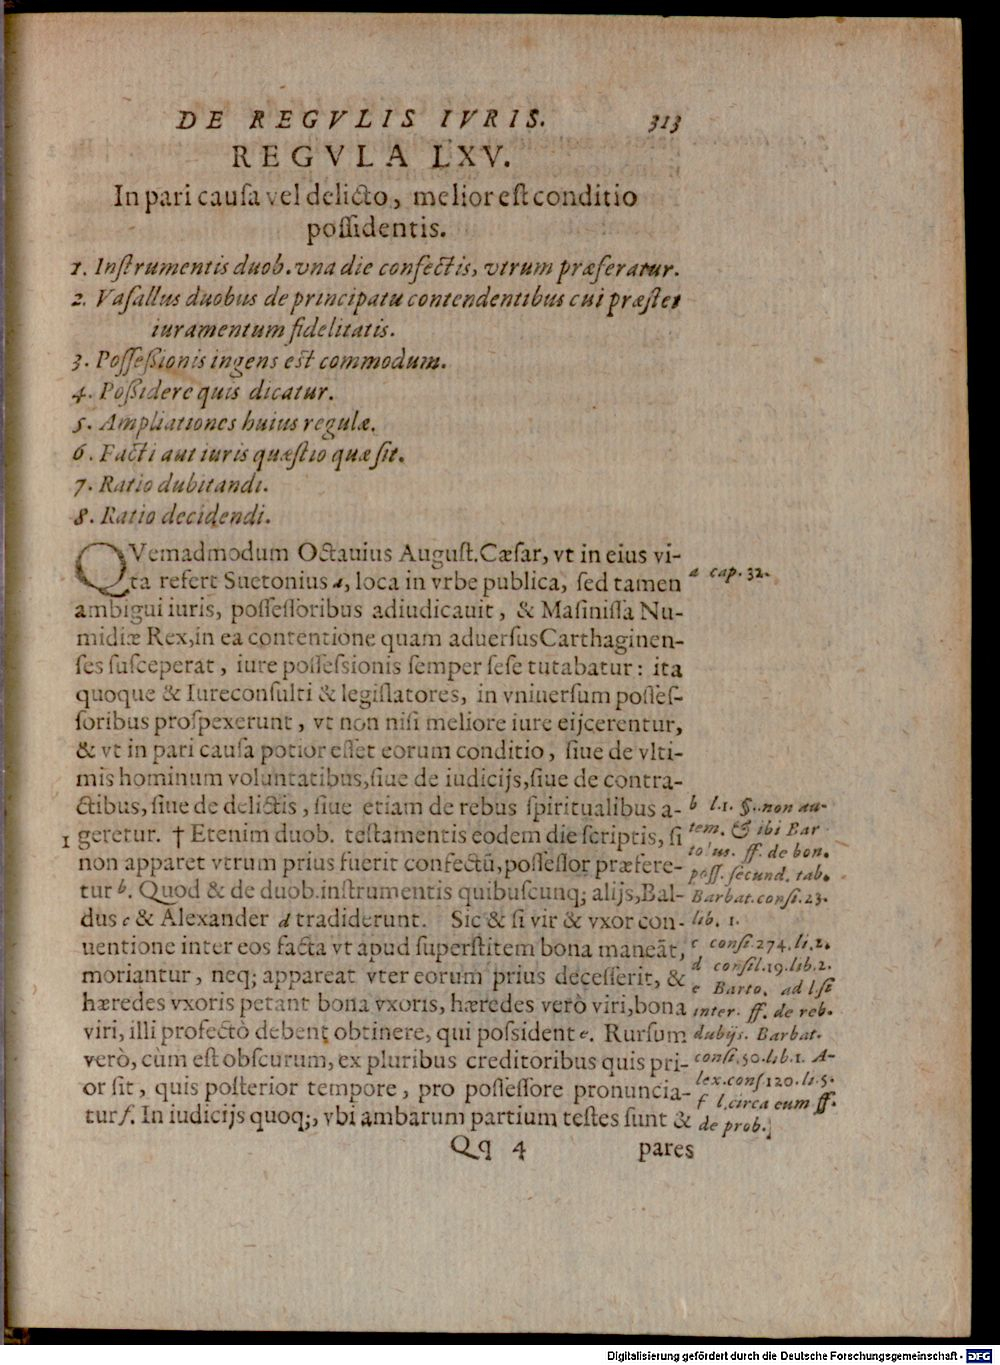 DE REGVLIS IVRIS. 313
REGVLA LXV.
In pari cauſa vel delicto, melior eſt conditio
poſſidentis.
1. Inſtrumentis duob. vna die confectis, vtrum præferatur.
2. Vaſallus duobus de principatu contendentibus cui præſtet
iuramentum fidelitatis.
3. Poſſeßionis ingens est commodum.
4. Poßidere quis dicatur.
5. Ampliationes huius regulæ.
6. Facti aut iuris quæstio quæ ſit.
7. Ratio dubitandi.
8. Ratio decidendi.
QVemadmodum Octauius Auguſt. Cæſar, vt in eius vi-
ta refert Suetonius a, loca in vrbe publica, ſed tamen
ambigui iuris, poſſeſſoribus adiudicauit, & Maſiniſſa Nu-
midiæ Rex, in ea contentione quam aduerſus Carthaginen-
ſes ſuſceperat, iure poſſeſsionis ſemper ſeſe tutabatur: ita
quoque & Iureconſulti & legiſlatores, in vniuerſum poſſeſ-
ſoribus proſpexerunt, vt non niſi meliore iure eijcerentur,
& vt in pari cauſa potior eſſet eorum conditio, ſiue de vlti-
mis hominum voluntatibus, ſiue de iudicijs, ſiue de contra-
ctibus, ſiue de delictis, ſiue etiam de rebus ſpiritualibus a-
1 geretur. † Etenim duob. teſtamentis eodem die ſcriptis, ſi
non apparet vtrum prius fuerit confectũ, poſſeſſor præfere-
tur b. Quod & de duob. inſtrumentis quibuſcunq; alijs, Bal-
dus c & Alexander d tradiderunt. Sic & ſi vir & vxor con-
uentione inter eos facta vt apud ſuperſtitem bona maneãt,
moriantur, neq; appareat vter eorum prius deceſſerit, &
hæredes vxoris petant bona vxoris, hæredes verò viri, bona
viri, illi profectò debent obtinere, qui poſsident e. Rurſum
verò, cùm eſt obſcurum, ex pluribus creditoribus quis pri-
or ſit, quis poſterior tempore, pro poſſeſſore pronuncia-
tur f. In iudicijs quoq;, vbi ambarum partium teſtes ſunt &
Qq 4 pares
a cap. 32.
b l. 1. §. non au-
tem. & ibi Bar
tolus. ff. de bon.
poſſ. ſecund. tab.
Barbat. conſi. 23.
lib. 1.
c conſi. 274. li. 2.
d conſil. 19. lib. 2.
e Barto. ad l. ſi
inter. ff. de reb.
dubijs. Barbat.
conſi. 50. lib. 1. A-
lex. conſ 120. li. 5.
f l. circa eum ff.
de prob.
Digitalisierung gefördert durch die Deutsche Forschungsgemeinschaft - DFG